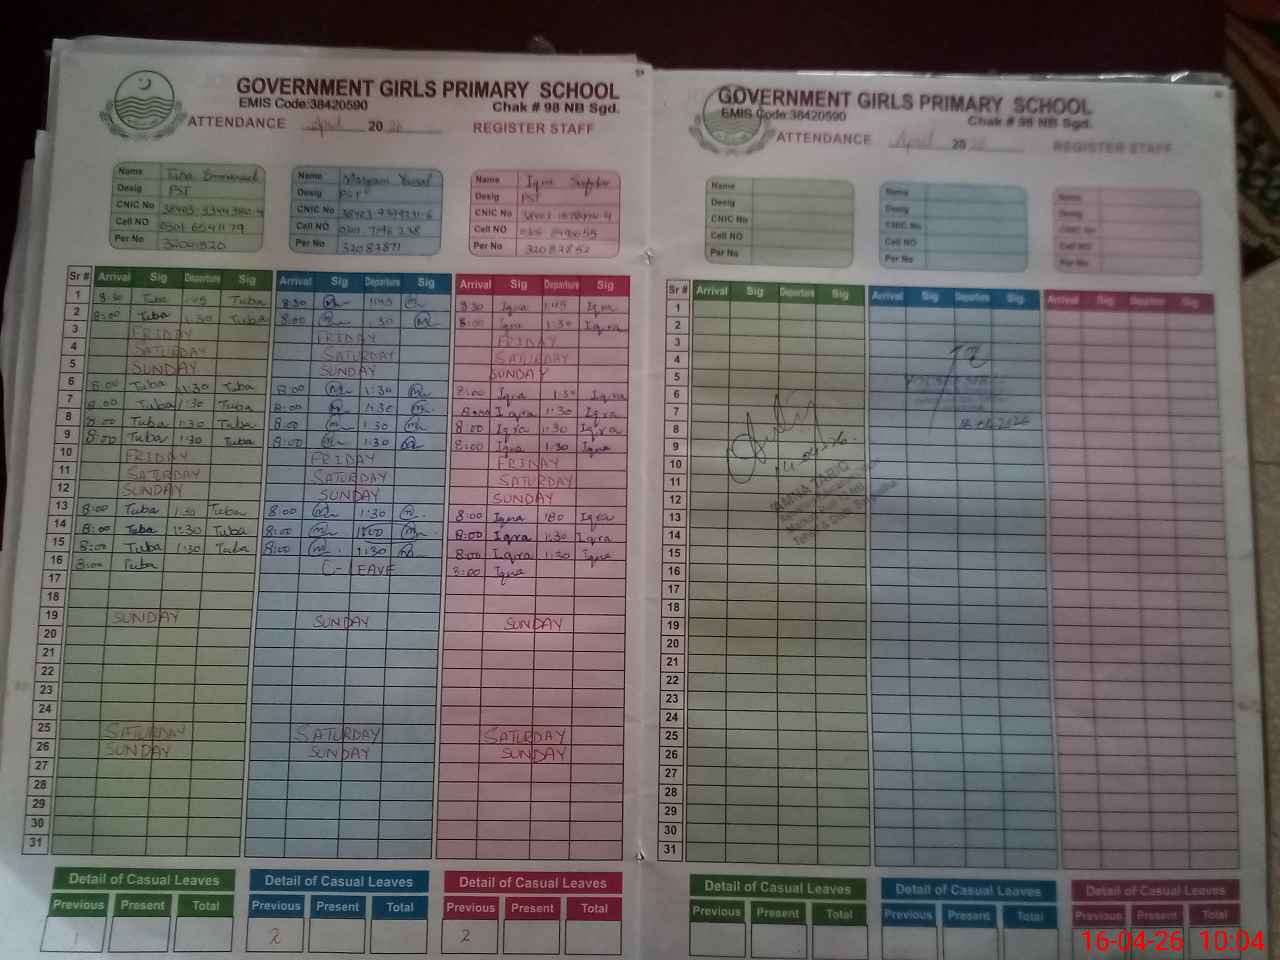 GOVERNMENT GIRLS PRIMARY SCHOOL
EMIS Code:38420590 Chak # 98 NB Sgd.
ATTENDANCE April 20 26 REGISTER STAFF
Name Tuba
Desig PST
CNIC No
Cell NO
Per No
Name Maryam
Desig PST
CNIC No
Cell NO
Per No 32082871
Name Iqra
Desig PST
CNIC No
Cell NO
Per No 32082852
Sr # Arrival Sig Departure Sig Arrival Sig Departure Sig Arrival Sig Departure Sig
1 8:30 Tuba 1:45 Tuba 8:30 1:45 8:30 Iqra 1:45 Iqra
2 8:00 Tuba 1:30 Tuba 8:00 1:30 8:00 Iqra 1:30 Iqra
3 FRIDAY FRIDAY FRIDAY
4 SATURDAY SATURDAY SATURDAY
5 SUNDAY SUNDAY SUNDAY
6 8:00 Tuba 1:30 Tuba 8:00 1:30 8:00 Iqra 1:30 Iqra
7 8:00 Tuba 1:30 Tuba 8:00 1:30 8:00 Iqra 1:30 Iqra
8 8:00 Tuba 1:30 Tuba 8:00 1:30 8:00 Iqra 1:30 Iqra
9 8:00 Tuba 1:30 Tuba 8:00 1:30 8:00 Iqra 1:30 Iqra
10 FRIDAY FRIDAY FRIDAY
11 SATURDAY SATURDAY SATURDAY
12 SUNDAY SUNDAY SUNDAY
13 8:00 Tuba 1:30 Tuba 8:00 1:30 8:00 Iqra Iqra
14 8:00 Tuba 1:30 Tuba 8:00 8:00 Iqra 1:30 Iqra
15 8:00 Tuba 1:30 Tuba 8:00 1:30 8:00 Iqra 1:30 Iqra
16 8:00 Tuba C-LEAVE 8:00 Iqra
17
18
19 SUNDAY SUNDAY SUNDAY
20
21
22
23
24
25 SATURDAY SATURDAY SATURDAY
26 SUNDAY SUNDAY SUNDAY
27
28
29
30
31
Detail of Casual Leaves Detail of Casual Leaves Detail of Casual Leaves
Previous Present Total Previous Present Total Previous Present Total
1 2 2
GOVERNMENT GIRLS PRIMARY SCHOOL
EMIS Code:38420590 Chak # 98 NB Sgd.
ATTENDANCE April 20 26 REGISTER STAFF
Name
Desig
CNIC No
Cell NO
Per No
Name
Desig
CNIC No
Cell NO
Per No
Name
Desig
CNIC No
Cell NO
Per No
Sr # Arrival Sig Departure Sig Arrival Sig Departure Sig Arrival Sig Departure Sig
1
2
3
4
5
6
7
8
9
10
11
12
13
14
15
16
17
18
19
20
21
22
23
24
25
26
27
28
29
30
31
14-04-26.
AMNA TARIQ
Detail of Casual Leaves Detail of Casual Leaves Detail of Casual Leaves
Previous Present Total Previous Present Total Previous Present Total
16-04-26 10:04